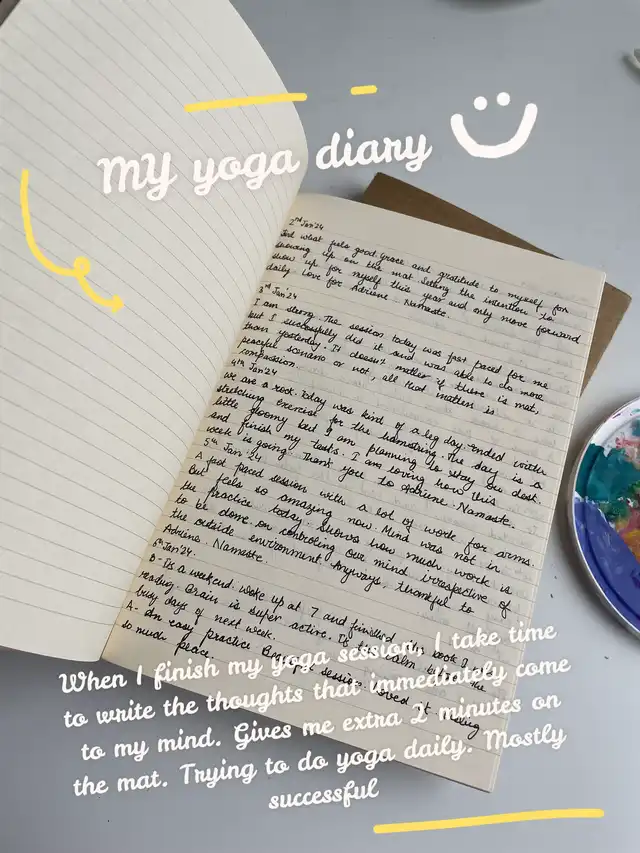 MY yoga diary
2nd Jan'24
Find what feels good. Grace and gratitude to myself for
showing up on the mat. Setting the intention to
show up for myself this year and only move forward
daily. Love for Adriene. Namaste.
3rd Jan'24
I am strong. The session today was fast paced for me
but I successfully did it and was able to do more
than yesterday. It doesn't matter if there is mat,
peaceful scenario or not, all that matters is
compassion.
4th Jan'24
we are a rock. Today was kind of a leg day. Ended with
stretching exercise for the hamstring. The day is a
little gloomy but I am planning to stay on desk
and finish my tasks. I am loving how this
week is going. Thank you to Adriene. Namaste.
5th Jan'24
A fast paced session with a lot of work for arms.
But feels so amazing now. Mind was not in
the practice today. Shows how much work is
to be done on controling our mind irrespective of
the outside environment. Anyways, thankful to
Adriene. Namaste.
6th Jan'24.
B- Is a weekend. woke up at 7 and finished my book I was
reading. Brain is super active. If to calm before the
busy days of next week.
A- An easy practice session. Loved it. Feeling
so much peace.
When I finish my yoga session, I take time
to write the thoughts that immediately come
to my mind. Gives me extra 2 minutes on
the mat. Trying to do yoga daily. Mostly
successful